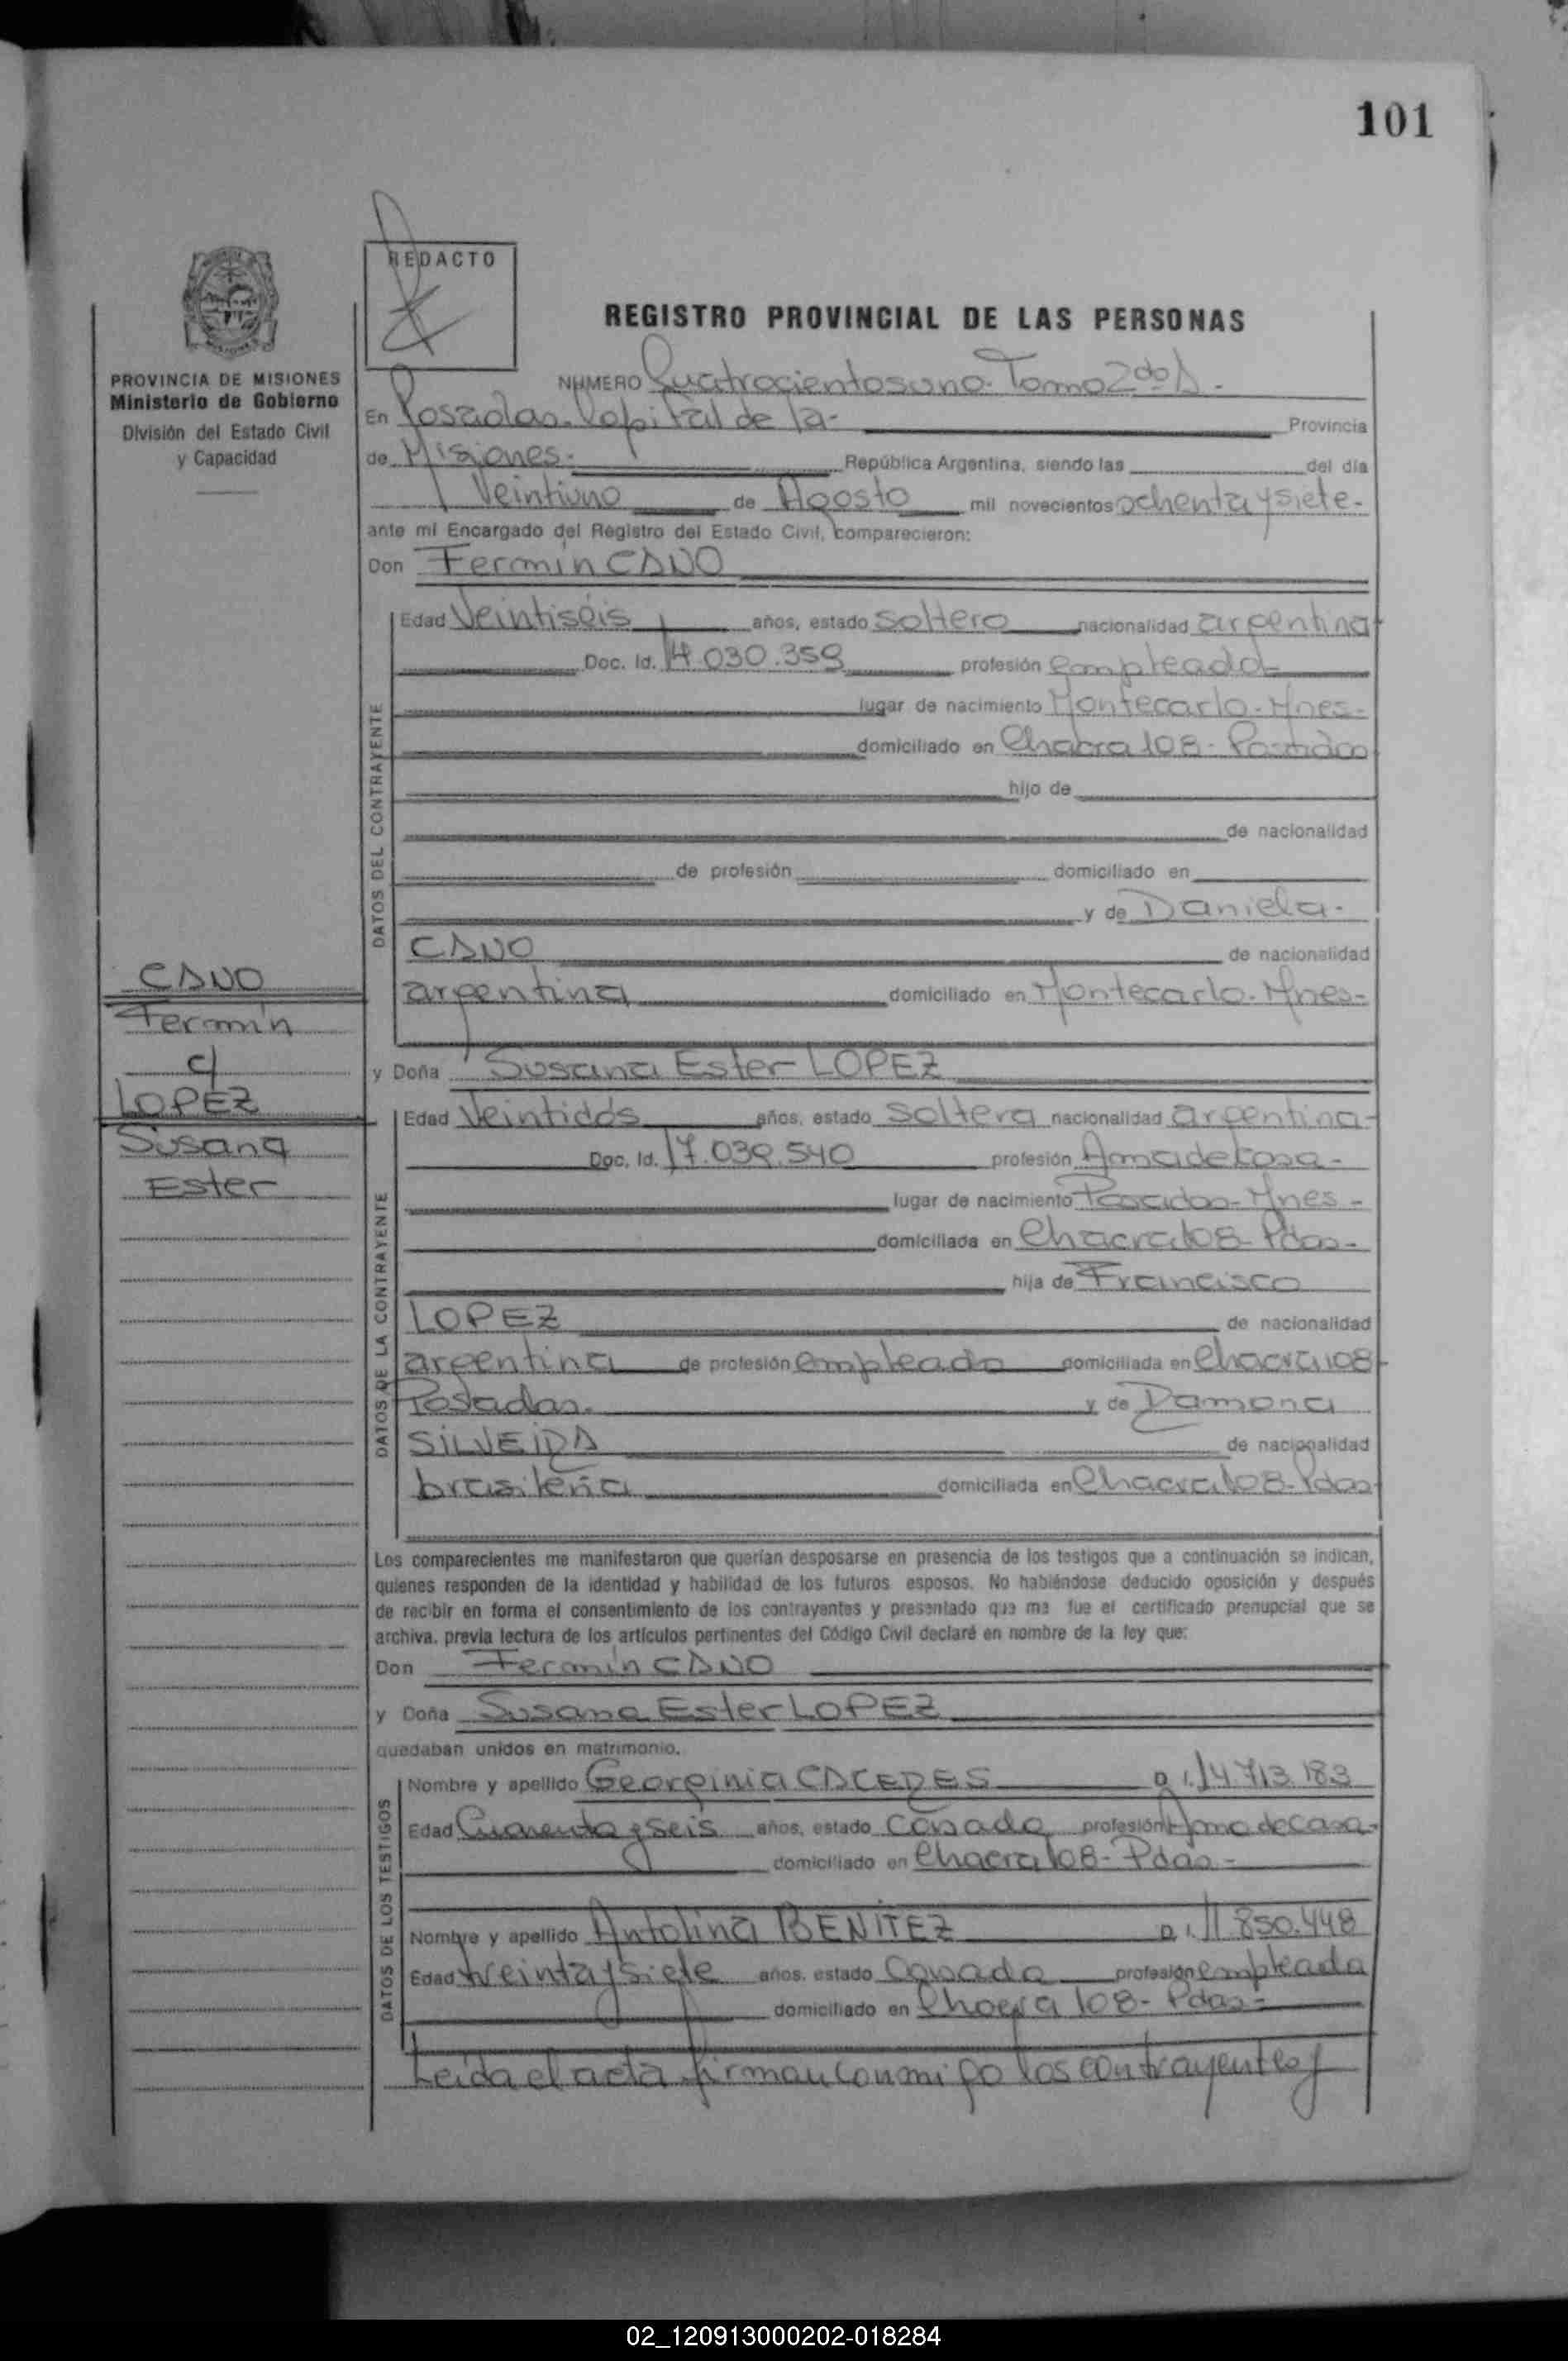 101
REDACTO
PROVINCIA DE MISIONES
Ministerio de Gobierno
División del Estado Civil
y Capacidad
REGISTRO PROVINCIAL DE LAS PERSONAS
NUMERO Cuatrocientos uno. Tomo 2do A.-
En Posadas. Capital de la- Provincia
de Misiones.- República Argentina, siendo las del día
Veintiuno de Agosto mil novecientos ochenta y siete-
ante mi Encargado del Registro del Estado Civil, comparecieron:
Don Fermín CANO
DATOS DEL CONTRAYENTE
Edad Veintiséis años, estado soltero nacionalidad argentina
Doc. Id. 14.030.359 profesión empleado
lugar de nacimiento Montecarlo-Mnes-
domiciliado en Chacra 108- Posadas
hijo de
de nacionalidad
de profesión domiciliado en
y de Daniela-
CANO de nacionalidad
argentina domiciliado en Montecarlo-Mnes-
CANO
Fermín
c/
LOPEZ
Susana
Ester
y Doña Susana Ester LOPEZ
DATOS DE LA CONTRAYENTE
Edad Veintidós años, estado Soltera nacionalidad argentina-
Doc. Id. 17.039.540 profesión Ama de Casa-
lugar de nacimiento Posadas-Mnes-
domiciliada en Chacra 108- Pdas-
hija de Francisco
LOPEZ de nacionalidad
argentina de profesión empleado domiciliada en Chacra 108
Posadas. y de Ramona
SILVEIRA de nacionalidad
brasileña domiciliada en Chacra 108-Pdas-
Los comparecientes me manifestaron que querían desposarse en presencia de los testigos que a continuación se indican,
quienes responden de la identidad y habilidad de los futuros esposos. No habiéndose deducido oposición y después
de recibir en forma el consentimiento de los contrayentes y presentado que me fue el certificado prenupcial que se
archiva, previa lectura de los artículos pertinentes del Código Civil declaré en nombre de la ley que:
Don Fermín CANO
y Doña Susana Ester LOPEZ
quedaban unidos en matrimonio.
DATOS DE LOS TESTIGOS
Nombre y apellido Georginia CACERES D.I. 14713183
Edad Cuarenta y seis años, estado Casada profesión Ama de Casa-
domiciliado en Chacra 108- Pdas-
Nombre y apellido Antolina BENITEZ D.I. 11850.448
Edad treinta y siete años, estado Casada profesión empleada
domiciliado en Chacra 108- Pdas-
Leída el acta firman conmigo los contrayentes y
02_120913000202-018284